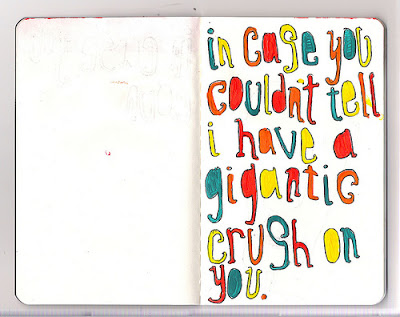 in case you
couldnt tell
i have a
gigantic
crush on
you.